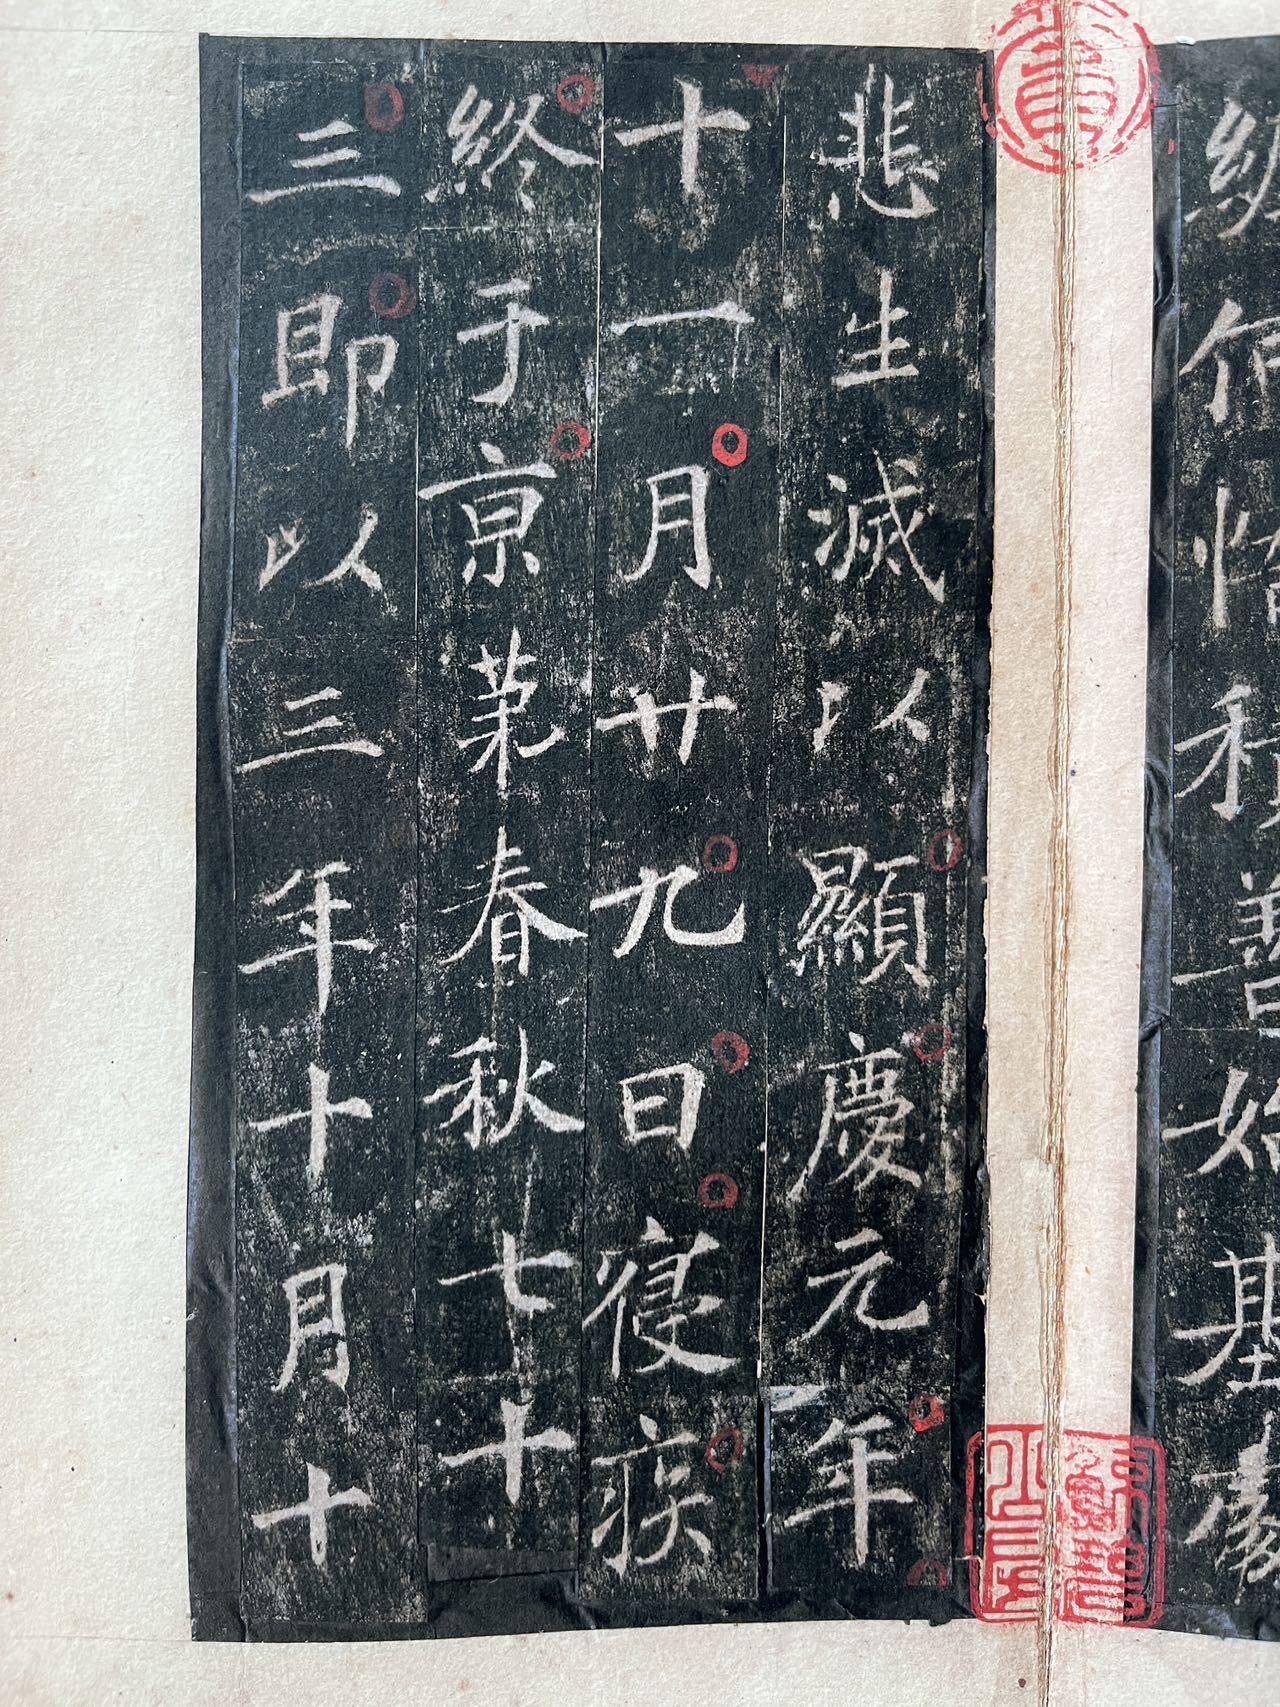 何積善始基
悲生滅以顯慶元年
十一月廿九日寢疾
終于亰苐春秋七十
三即以三年十月十